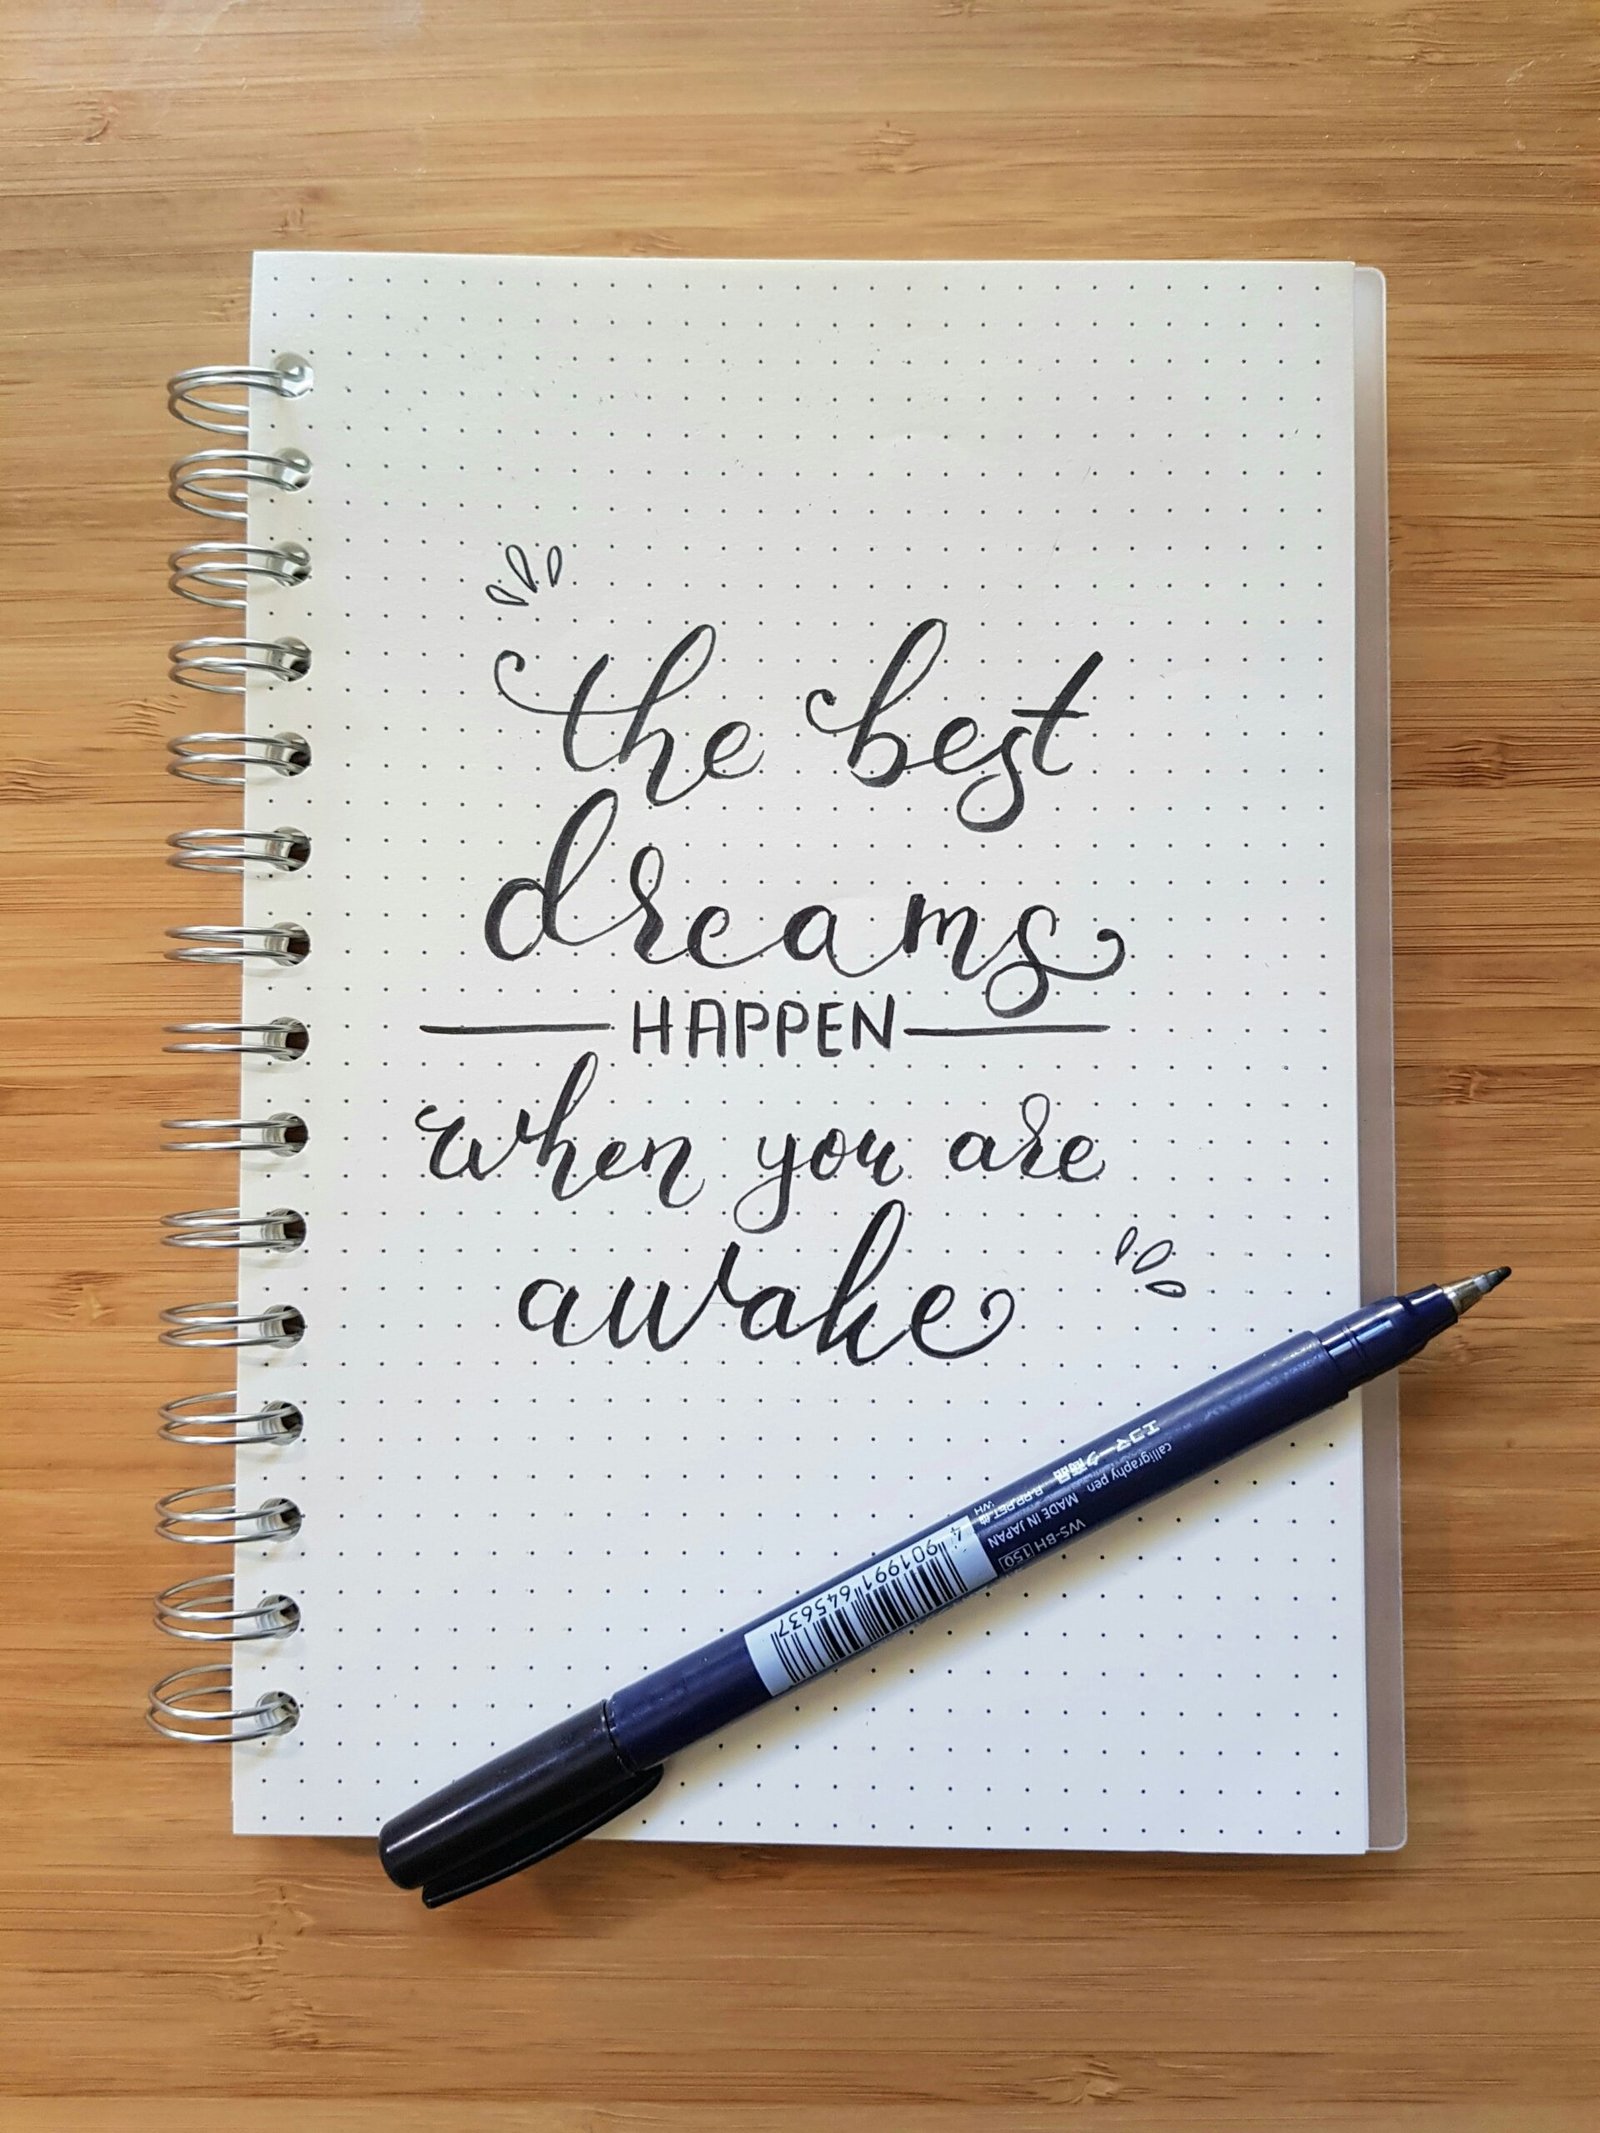 the best
dreams
HAPPEN
when you are
awake
エコマーク商品
calligraphy pen
P.P,PP,PET,他
WH
MADE IN JAPAN
WS-BH 150
4 901991 645637